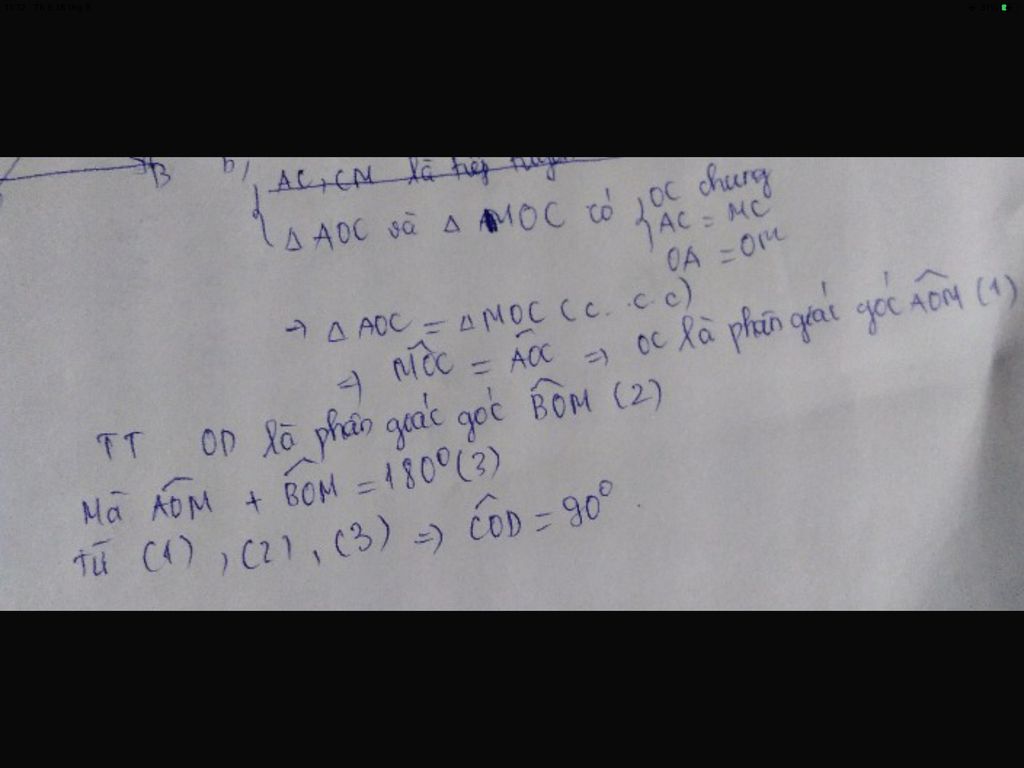 B b) AC, CM là tiếp
△ AOC và △ MOC có { OC chung
AC = MC
OA = OM
→ △ AOC = △ MOC (c.c.c)
⇒ M̂OC = ÂOC ⇒ OC là phân giác góc ÂOM (1)
TT OD là phân giác góc B̂OM (2)
Mà ÂOM + B̂OM = 180° (3)
Từ (1), (2), (3) ⇒ ĈOD = 90°